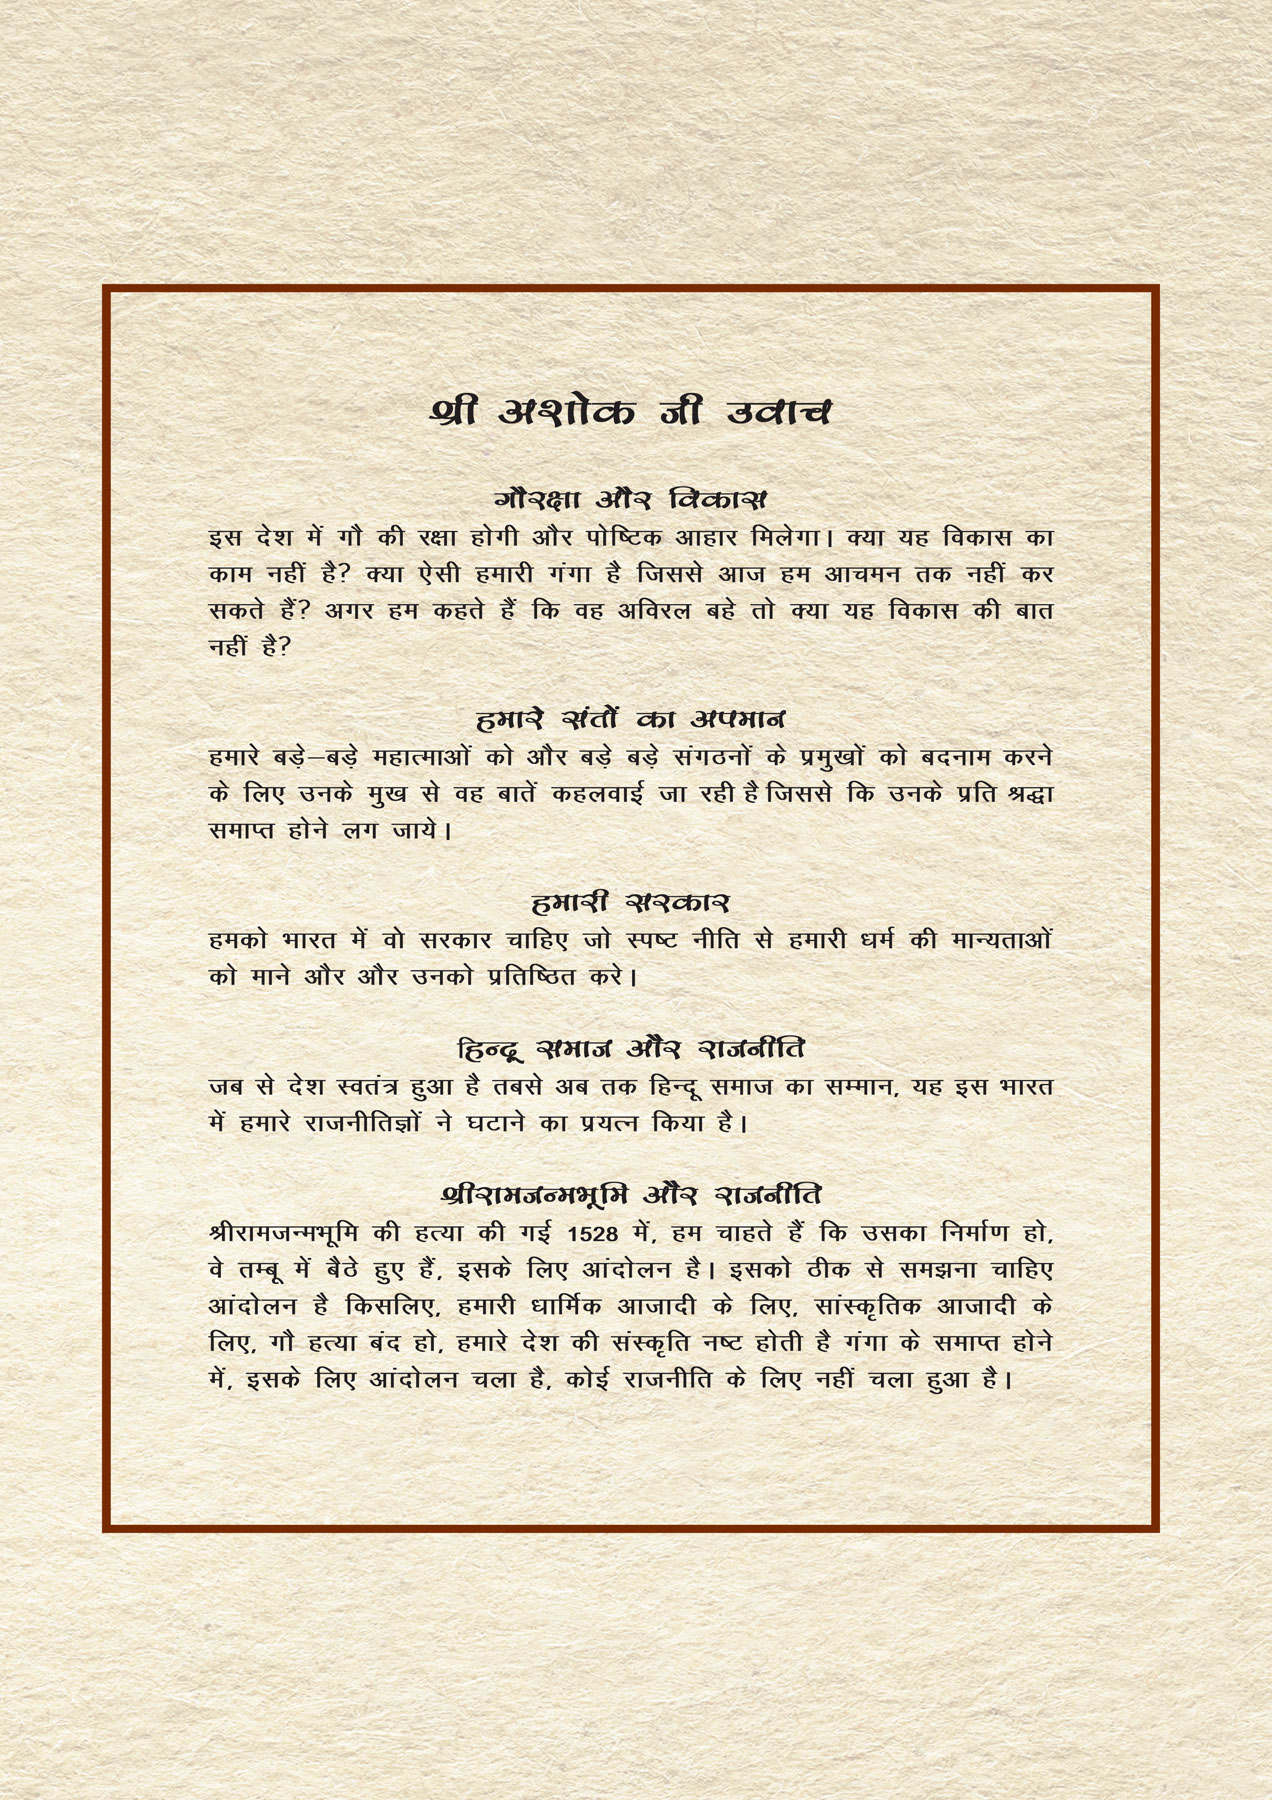 श्री अशोक जी उवाच
गौरक्षा और विकास
इस देश में गौ की रक्षा होगी और पोष्टिक आहार मिलेगा। क्या यह विकास का
काम नहीं है? क्या ऐसी हमारी गंगा है जिससे आज हम आचमन तक नहीं कर
सकते हैं? अगर हम कहते हैं कि वह अविरल बहे तो क्या यह विकास की बात
नहीं है?
हमारे संतों का अपमान
हमारे बड़े–बड़े महात्माओं को और बड़े बड़े संगठनों के प्रमुखों को बदनाम करने
के लिए उनके मुख से वह बातें कहलवाई जा रही है जिससे कि उनके प्रति श्रद्धा
समाप्त होने लग जाये।
हमारी सरकार
हमको भारत में वो सरकार चाहिए जो स्पष्ट नीति से हमारी धर्म की मान्यताओं
को माने और और उनको प्रतिष्ठित करे।
हिन्दू समाज और राजनीति
जब से देश स्वतंत्र हुआ है तबसे अब तक हिन्दू समाज का सम्मान, यह इस भारत
में हमारे राजनीतिज्ञों ने घटाने का प्रयत्न किया है।
श्रीरामजन्मभूमि और राजनीति
श्रीरामजन्मभूमि की हत्या की गई 1528 में, हम चाहते हैं कि उसका निर्माण हो,
वे तम्बू में बैठे हुए हैं, इसके लिए आंदोलन है। इसको ठीक से समझना चाहिए
आंदोलन है किसलिए, हमारी धार्मिक आजादी के लिए, सांस्कृतिक आजादी के
लिए, गौ हत्या बंद हो, हमारे देश की संस्कृति नष्ट होती है गंगा के समाप्त होने
में, इसके लिए आंदोलन चला है, कोई राजनीति के लिए नहीं चला हुआ है।